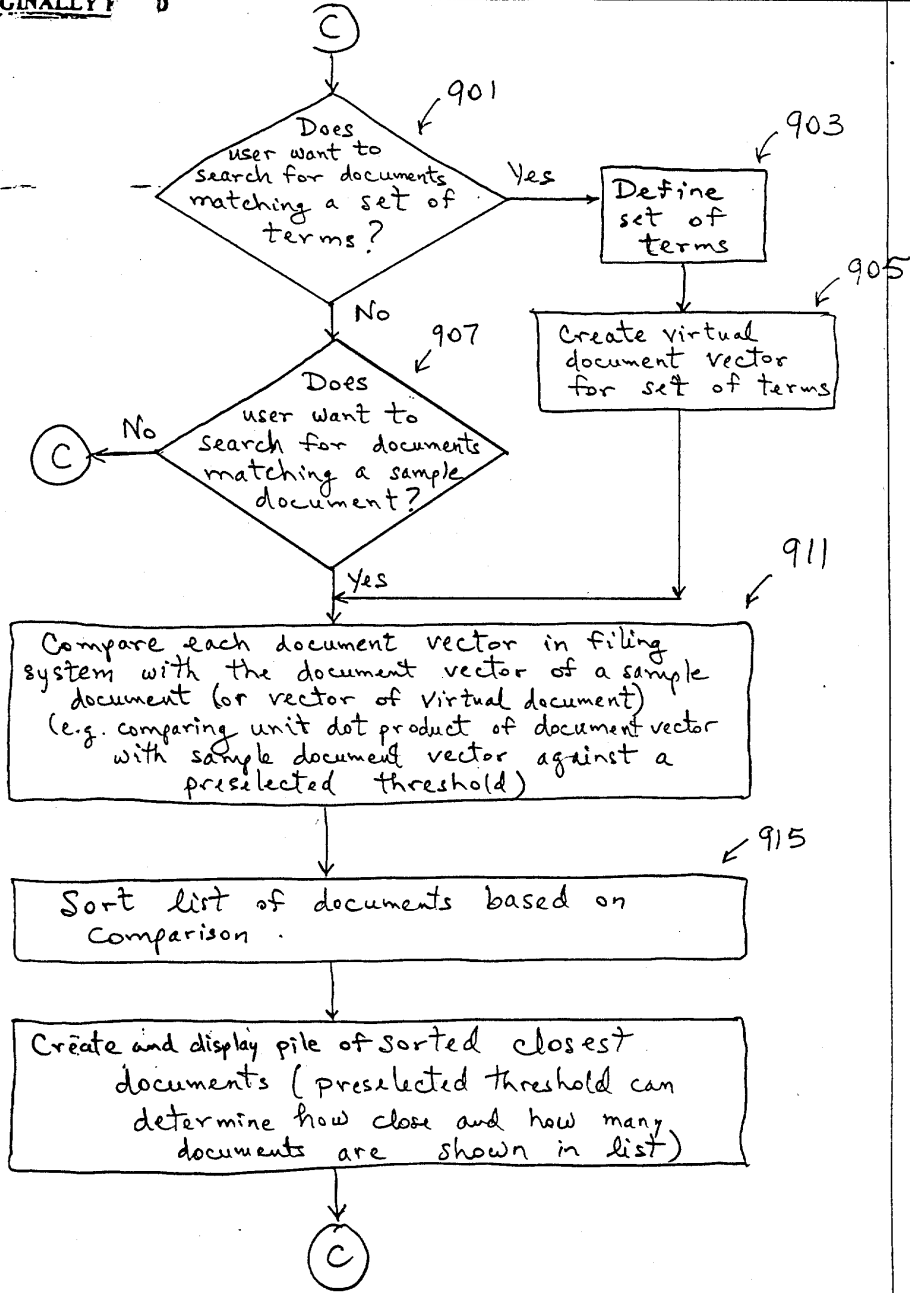 C
901
Does
user want to
search for documents
matching a set of
terms?
Yes
903
Define
set of
terms
905
Create virtual
document vector
for set of terms
No
907
Does
user want to
search for documents
matching a sample
document?
No
C
Yes
911
Compare each document vector in filing
system with the document vector of a sample
document (or vector of virtual document)
(e.g. comparing unit dot product of document vector
with sample document vector against a
preselected threshold)
915
Sort list of documents based on
comparison.
Create and display pile of sorted closest
documents (preselected threshold can
determine how close and how many
documents are shown in list)
C